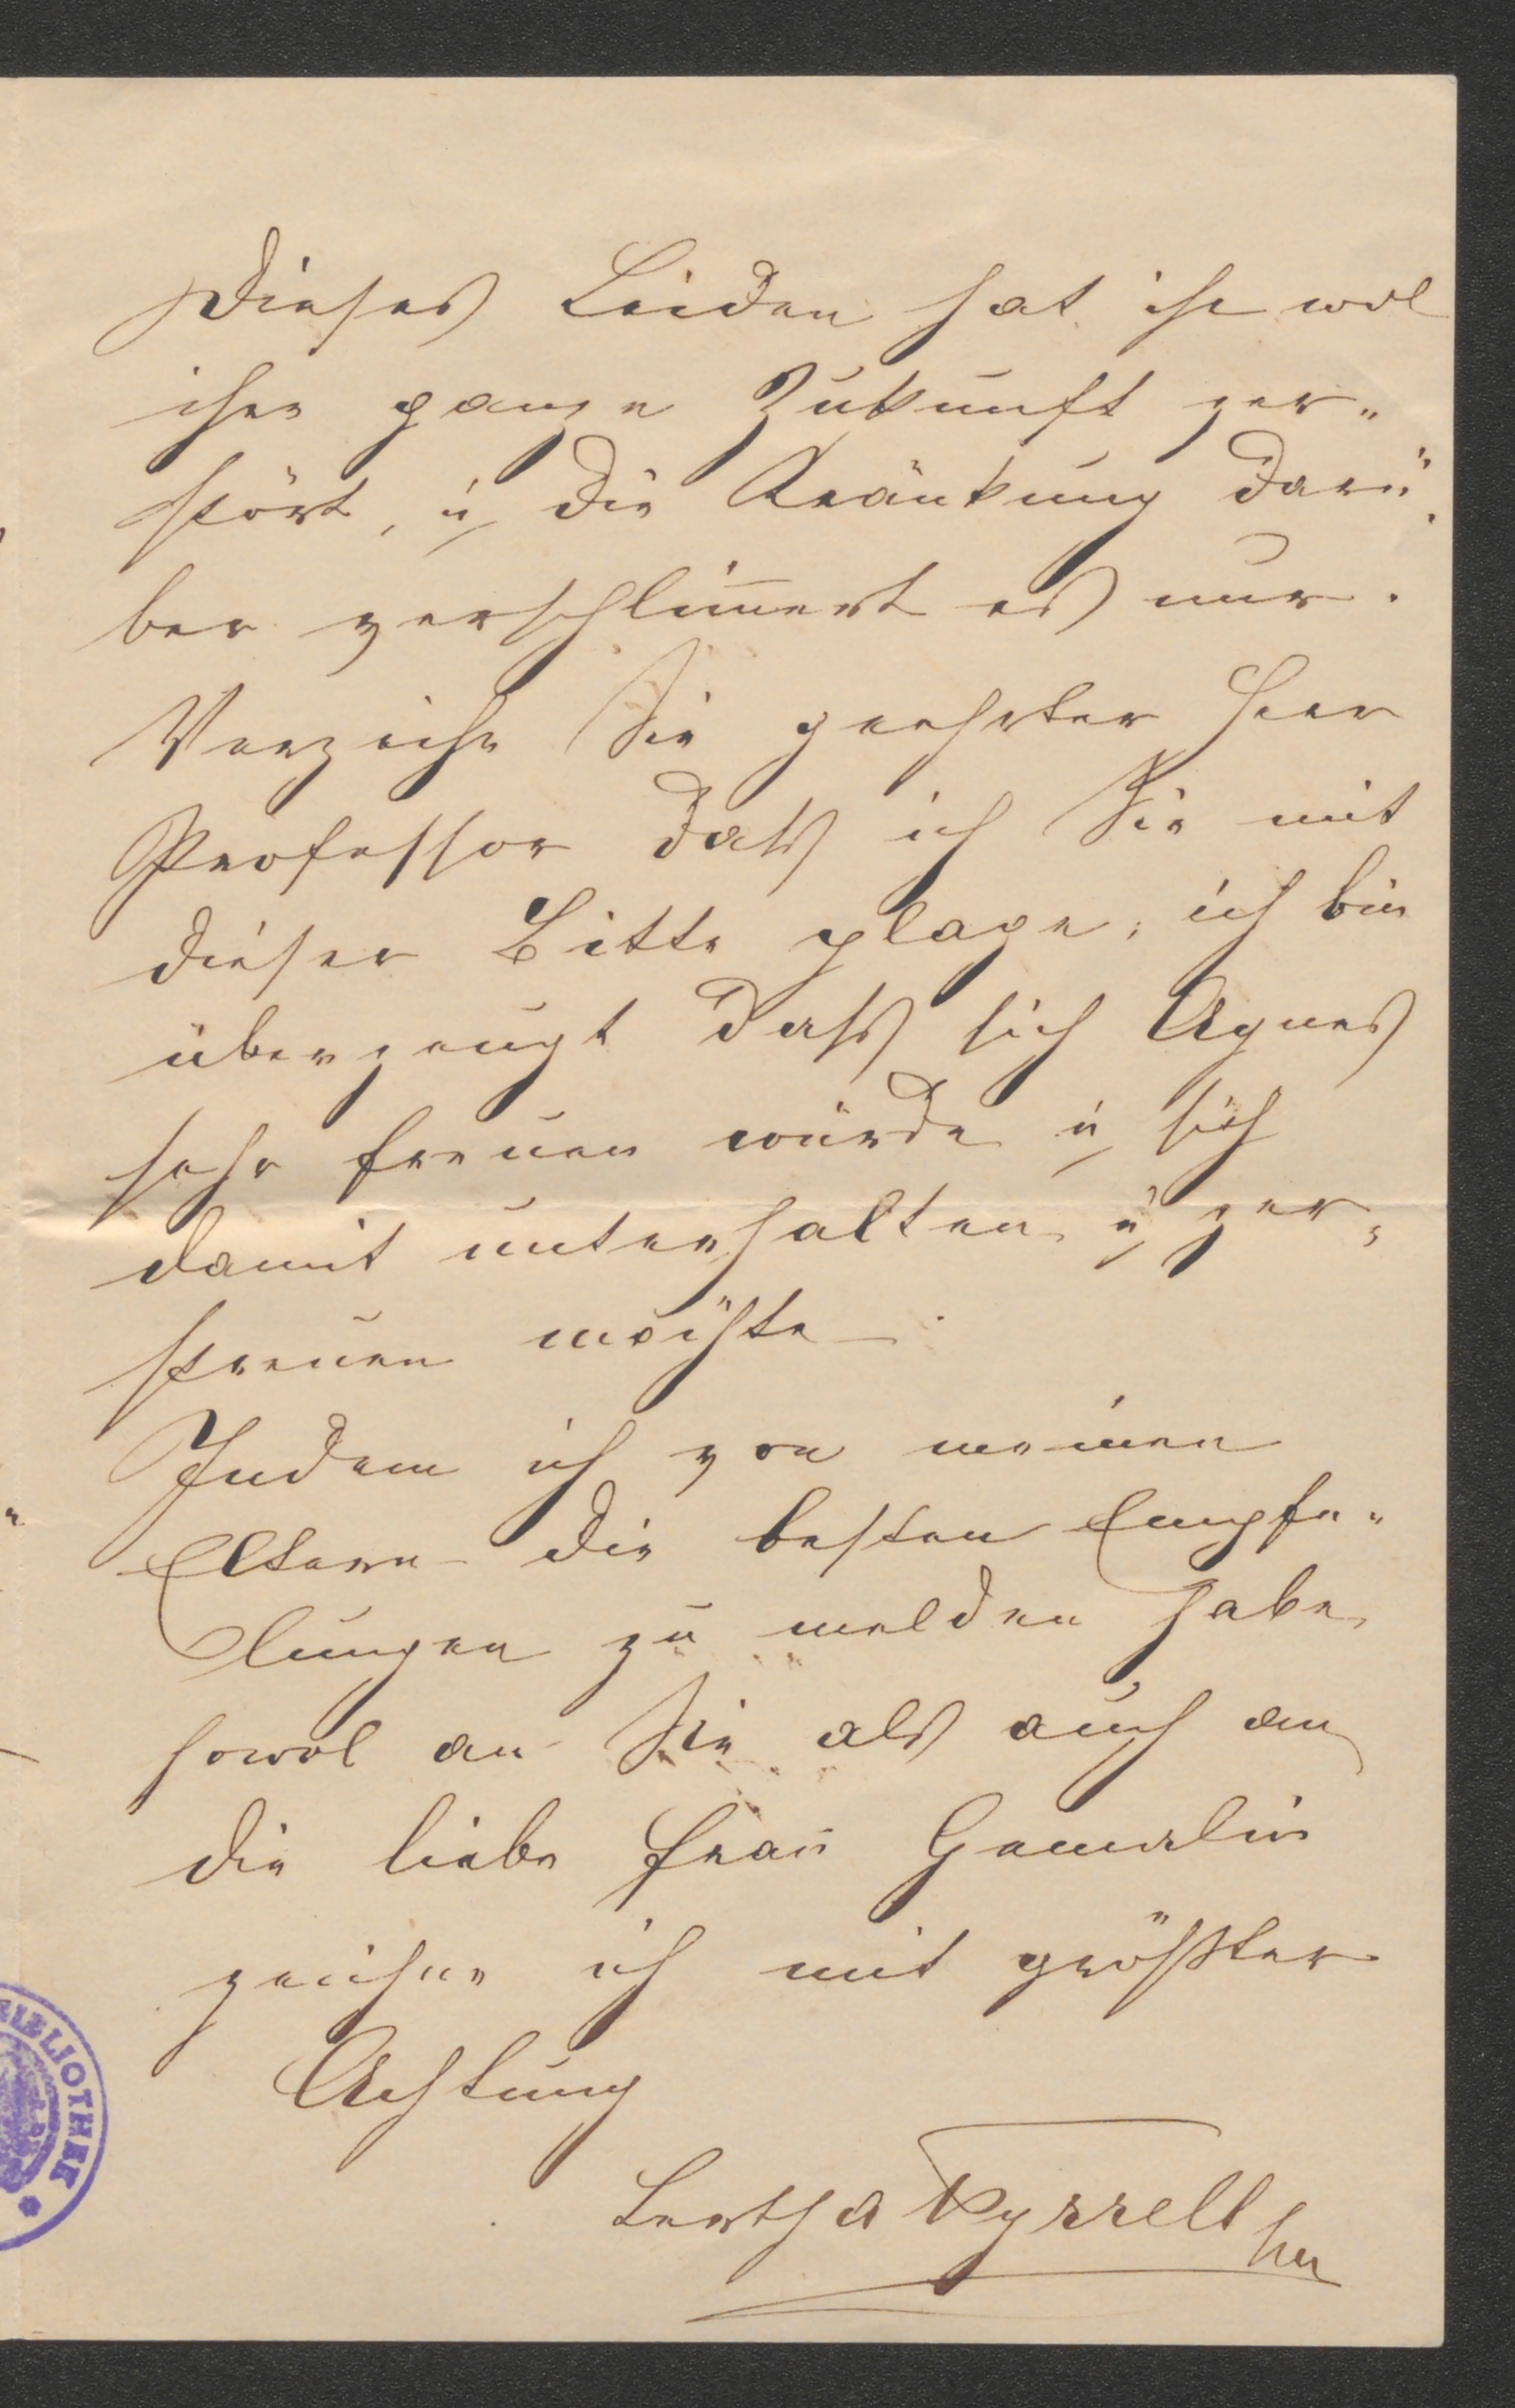 Dieses Leiden hat ihr wol
ihre ganze Zukunft zer„
stört, u die Kränkung darü„
ber verschlim̄ert es nur.
Verzeihe Sie geehrter Herr
Professor dass ich Sie mit
dieser Bitte plage, ich bin
überzeugt dass sich Agnes
sehr freuen würde u sich
damit unterhalten u zer„
streuen möchte.
Indem ich von meinen
Eltern die besten Empfe„
lungen zu melden habe
sowol an Sie als auch an
die liebe Frau Gemalin
zeichne ich mit größter
Achtung
Bertha Tyrrell
BIBLIOTHEK